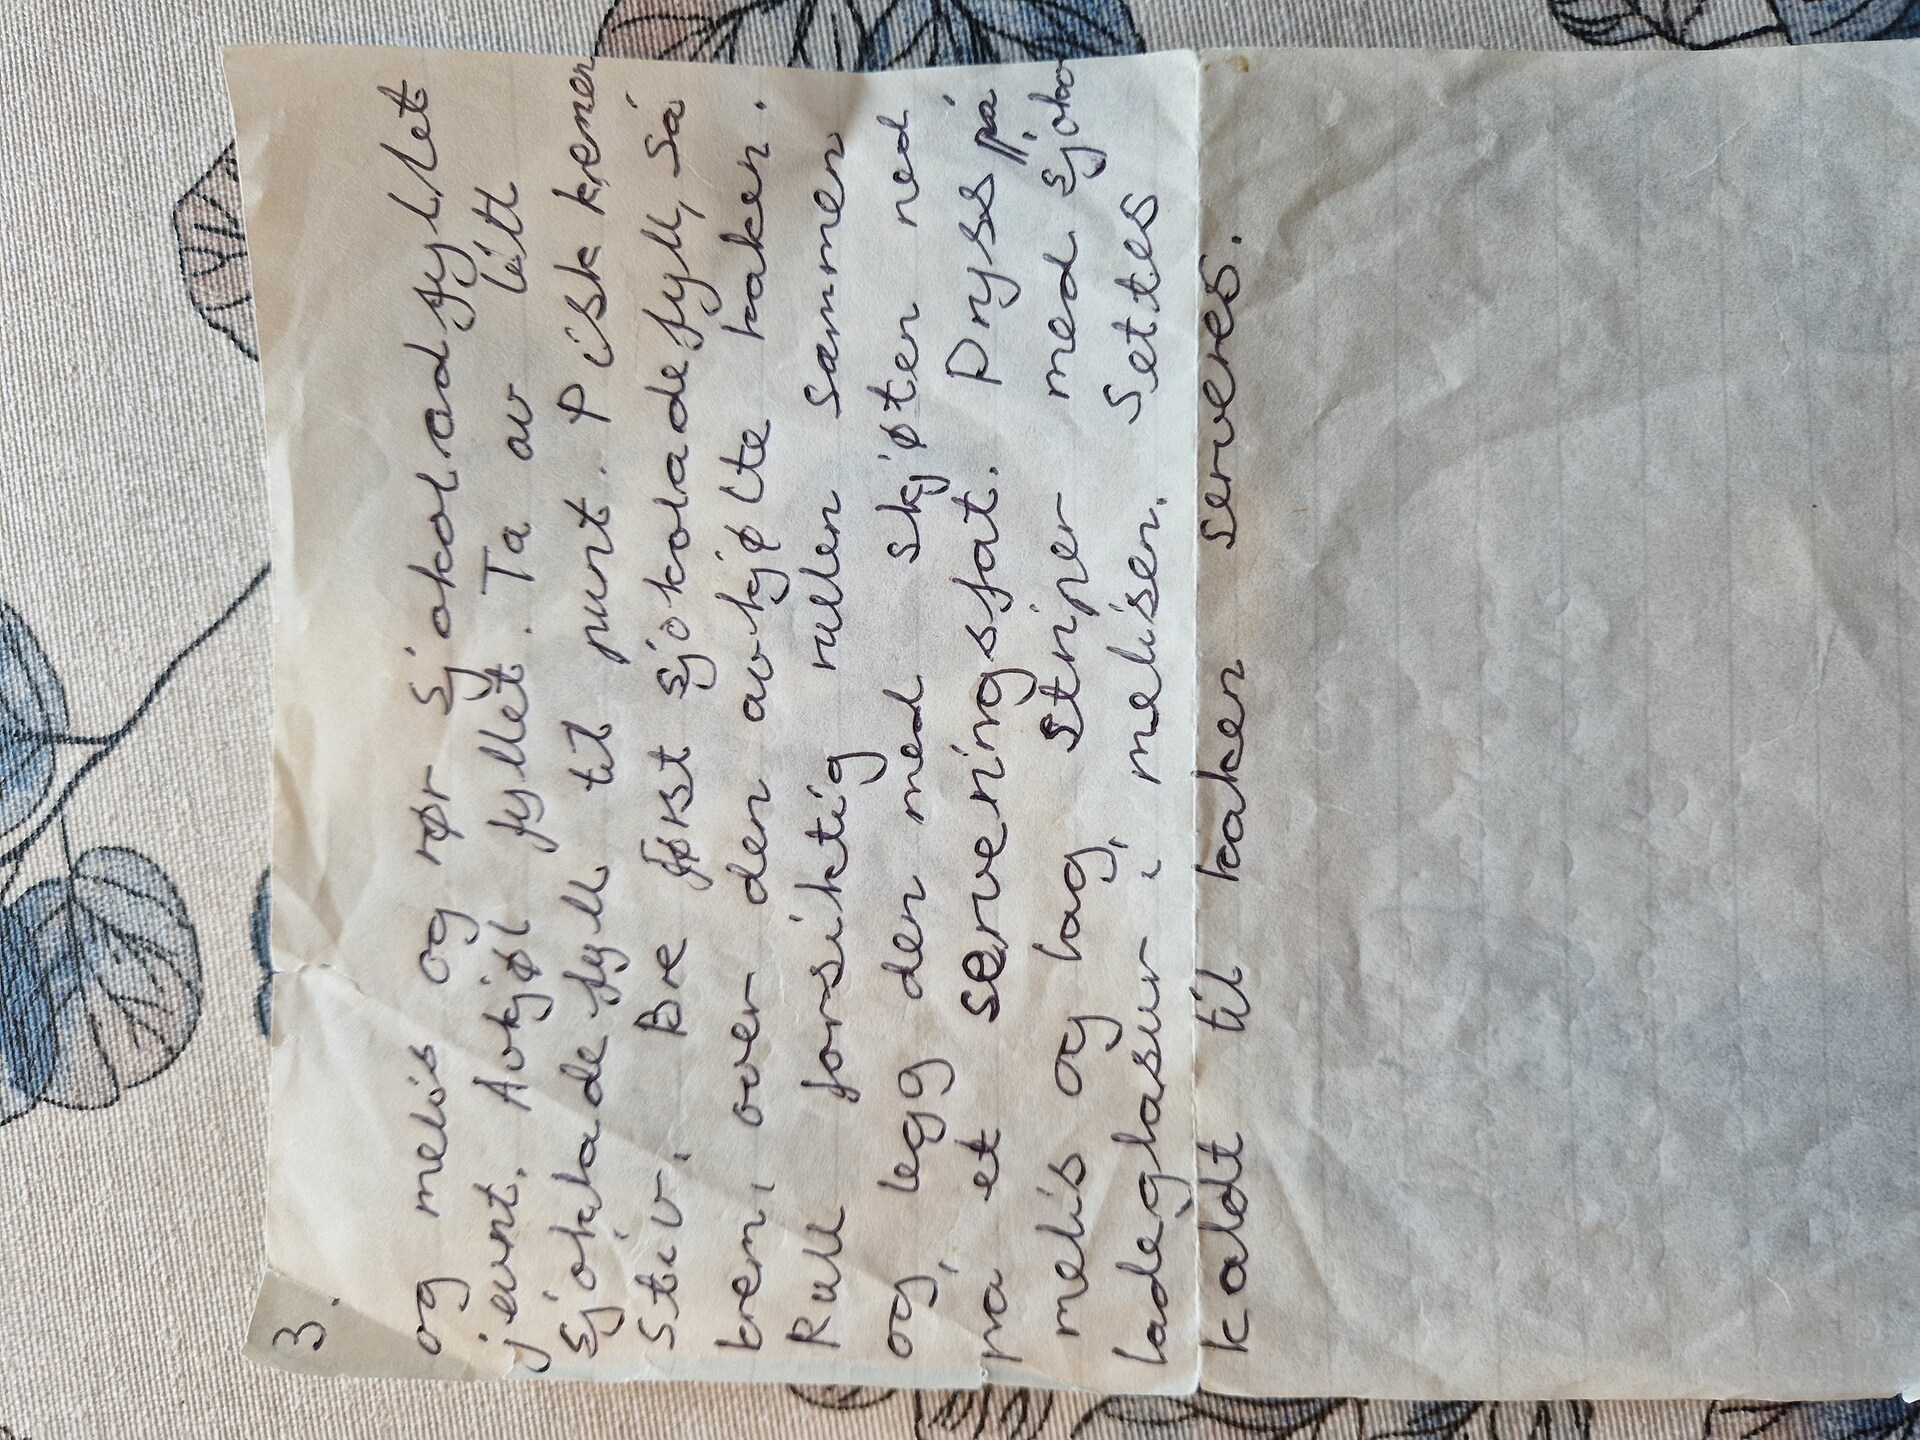 3.
og melis og rør sjokoladfyllet
jevnt. Avkjøl fyllet. Ta av litt
sjoklade fyll til punt. Pisk kremen
stiv. Bre først sjokoladefyll, så
krem, over den avkjølte kaken.
Rull forsiktig rullen sammen
og legg den med skjøten ned
på et serveringsfat. Dryss på
melis og lag striper med sjoko
ladeglasur i melisen. Settes
kaldt til kaken serveres.